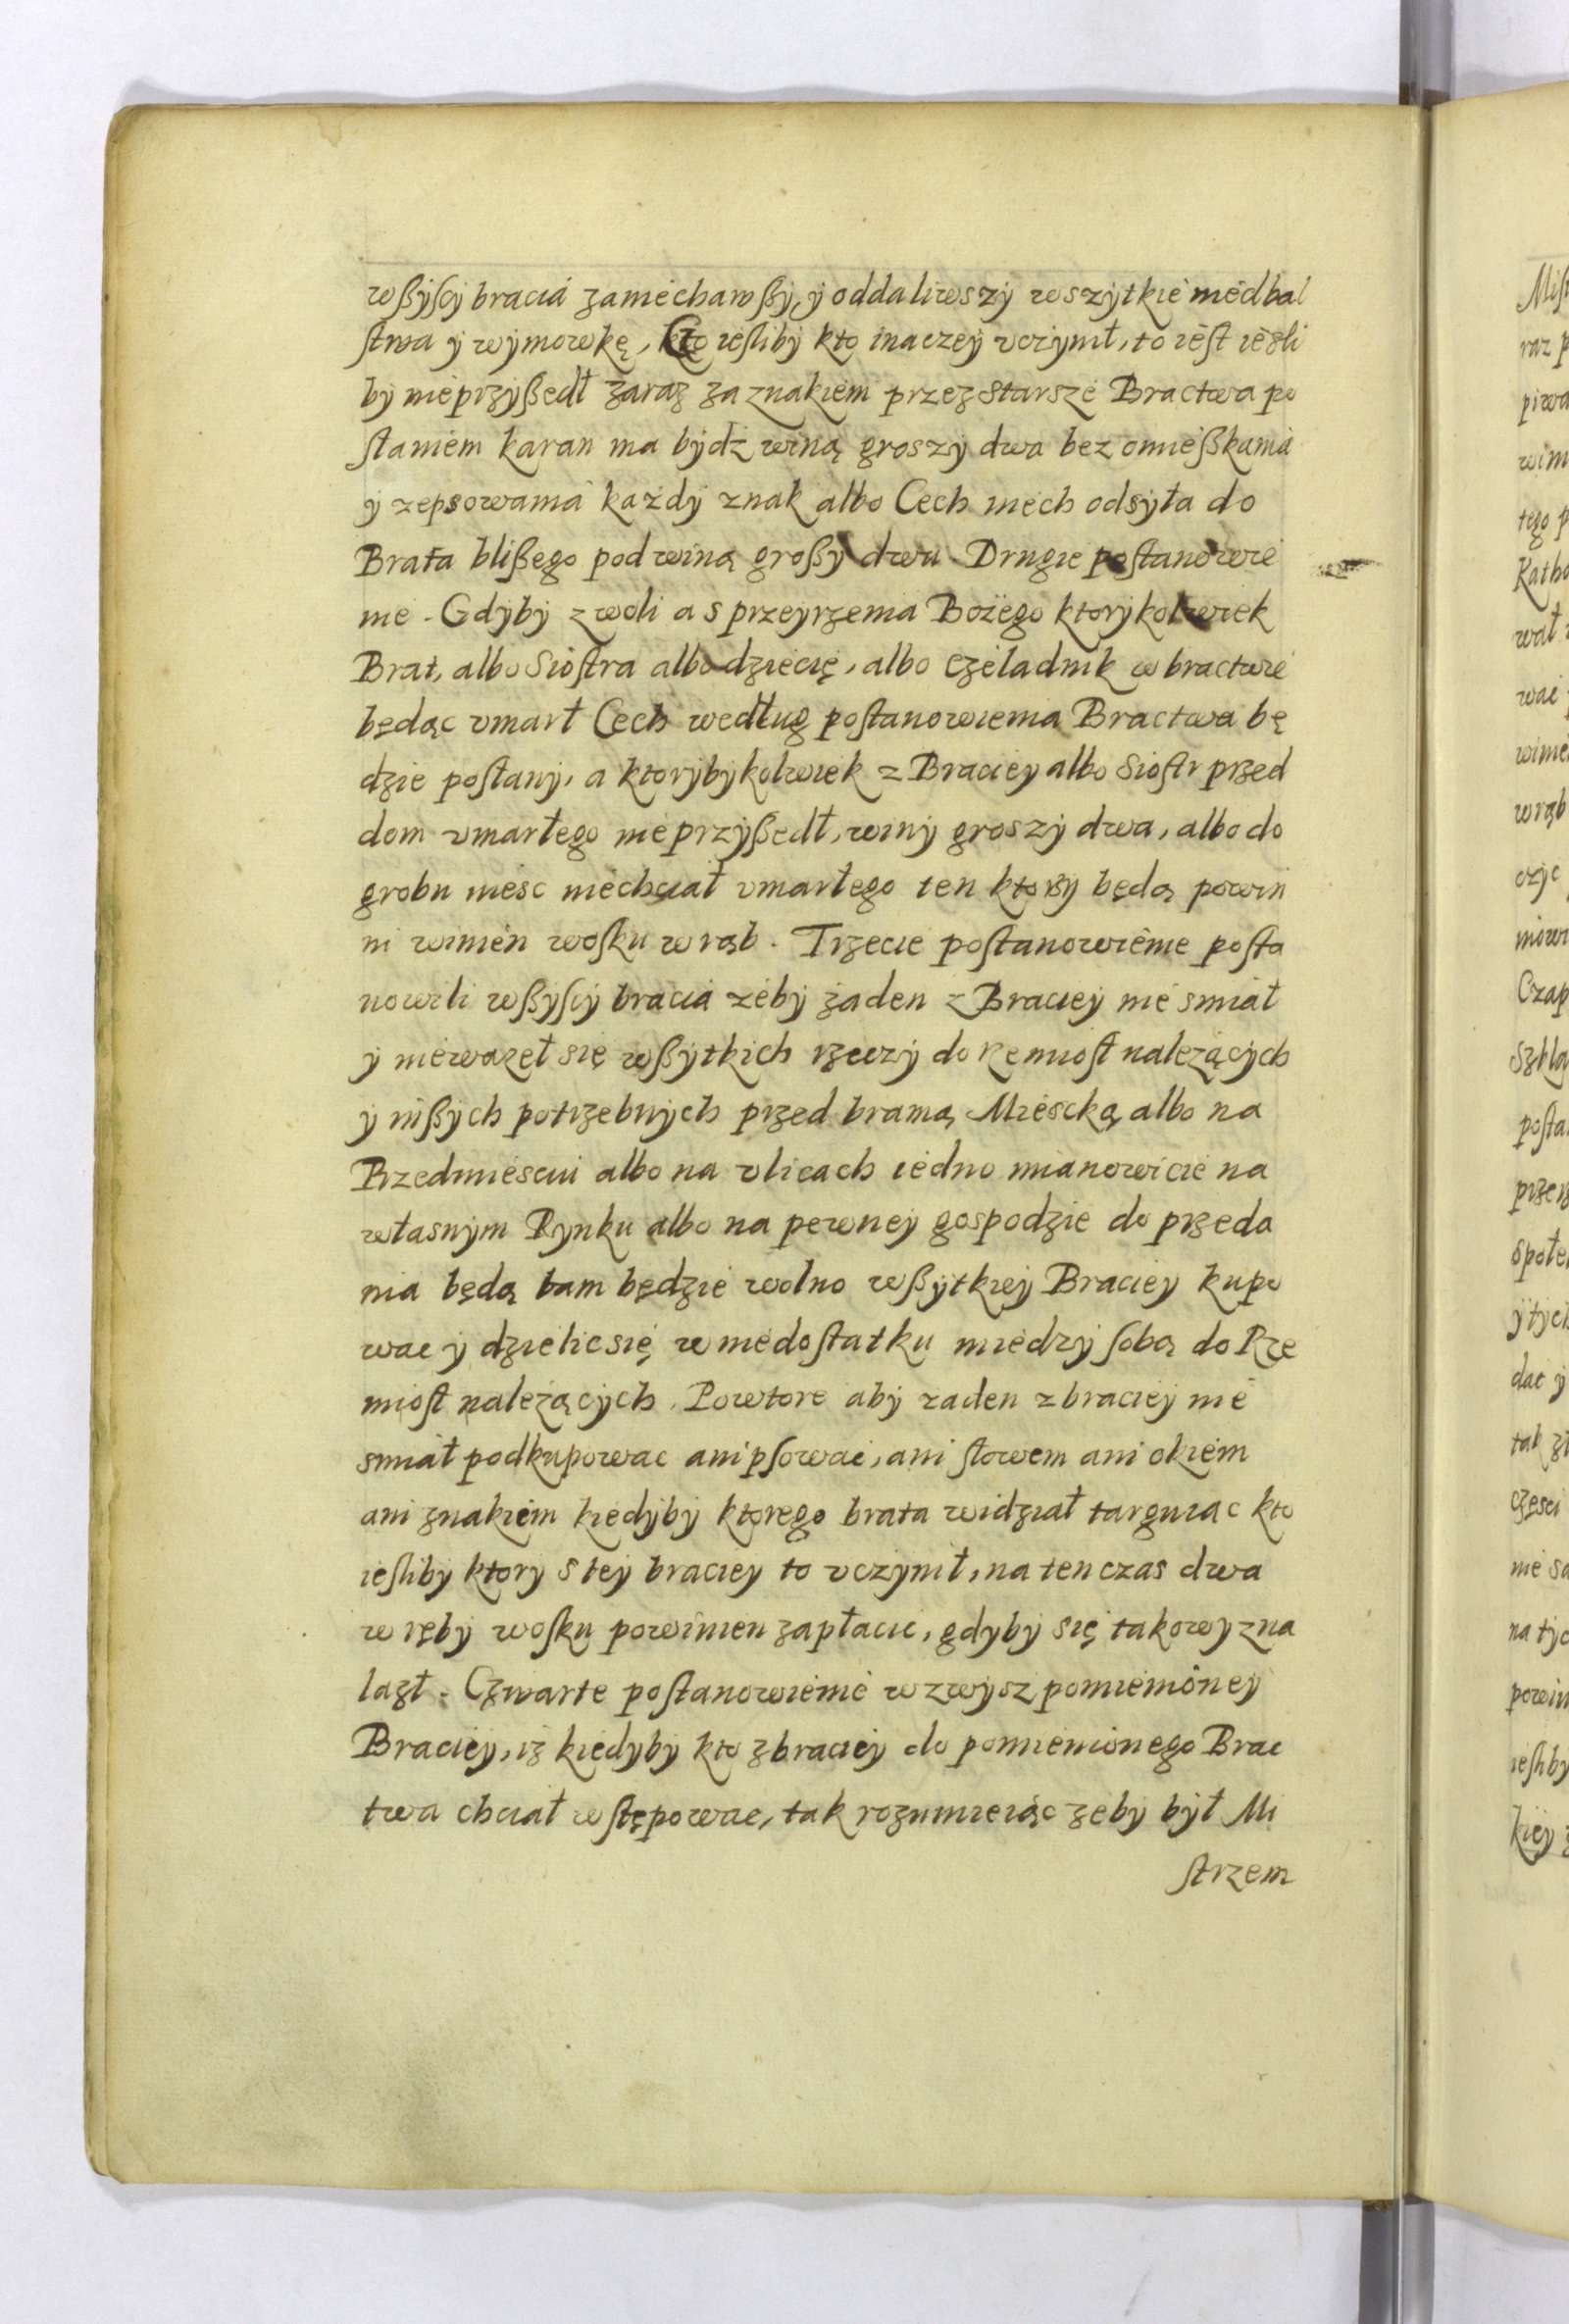 wßyſcy bracia zaniechawßy, y oddaliwszy wszytkie niedbal
ſtwa y wymowkę, kto ieſliby kto inaczey vczynił, to ieſt ieżli
by nieprzyßedł zaraz za znakiem przez starsze Bractwa po
ſłaniem karan ma bydź winą groszy dwa bez omießkania
y zepsowania każdy znak albo Cech niech odsyła do
Brata blißego pod winą großy dwu. Drugie poſtanowie
nie. Gdyby z woli a s przeyrzenia Bożego ktorykolwiek
Brat, albo Sioſtra albo dziecię, albo czeladnik w bractwie
będąc vmarł Cech według poſtanowienia Bractwa bę
dzie poſłany, a ktorybykolwiek z Braciey albo Sioſtr przed
dom vmarłego nie przyßedł, winy groszy dwa, albo do
grobu niesc niechciał vmarłego ten ktorzy będą powin
ni winien woſku w rąb. Trzecie poſtanowienie poſta
nowili wßyſcy bracia zeby żaden z Braciey nie smiał
y nieważeł się wßytkich rzeczy do Rzemioſł należących
y inßych potrzebnych przed bramą Miescką albo na
Przedmiesciu albo na vlicach iedno mianowicie na
własnym Rynku albo na pewney gospodzie do przeda
nia będą tam będzie wolno wßytkiey Braciey kupo
wac y dzielic się w niedoſtatku miedzy ſobą do Rze
mioſł należących. Powtore aby zaden z braciey nie
smiał podkupowac ani pſowac, ani ſłowem ani okiem
ani znakiem kiedyby ktorego brata widział targuiąc kto
ieſliby ktory s tey braciey to vczynił, na ten czas dwa
w ręby woſku powinien zapłacic, gdyby się takowy zna
lazł. Czwarte poſtanowienie wzwysz pomienioney
Braciey, iż kiedyby kto z braciey do pomienionego Brac
twa chciał wſtępowac, tak rozumieiąc żeby był Mi
ſtrzem